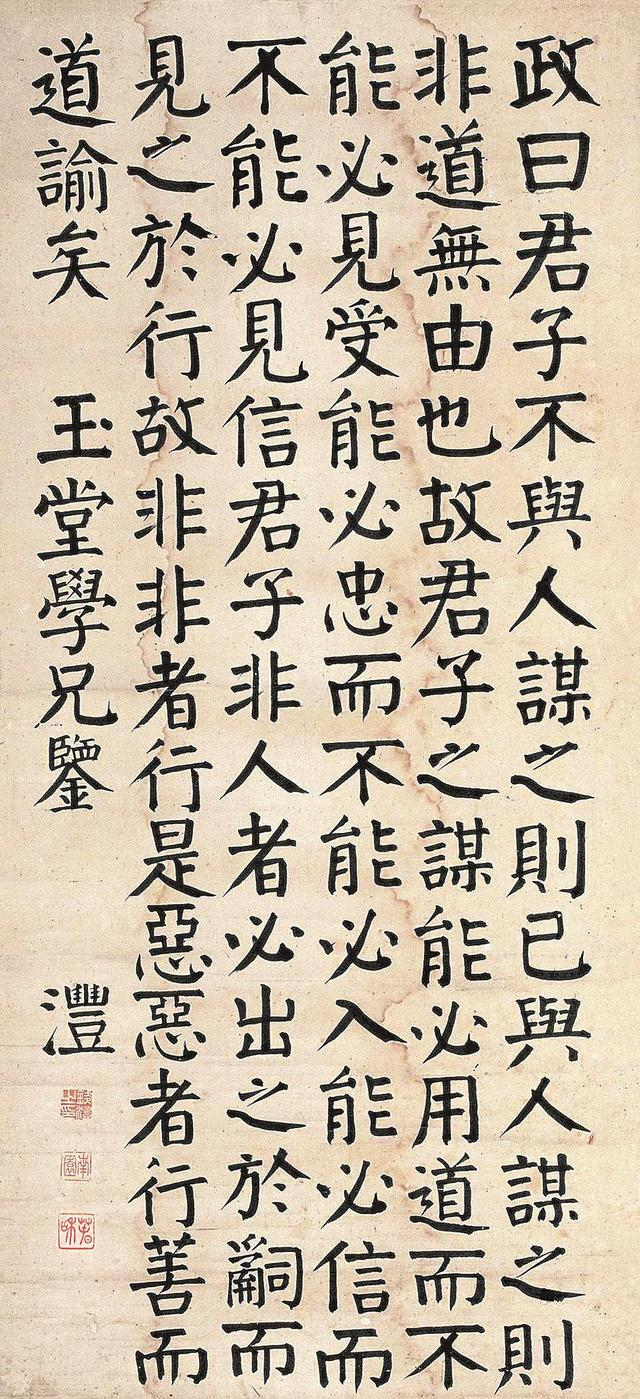 政曰君子不與人謀之則已與人謀之則
非道無由也故君子之謀能必用道而不
能必見受能必忠而不能必入能必信而
不能必見信君子非人者必出之於辭而
見之於行故非非者行是惡惡者行善而
道諭矣 玉堂學兄鑒 灃
錢灃之印
南園